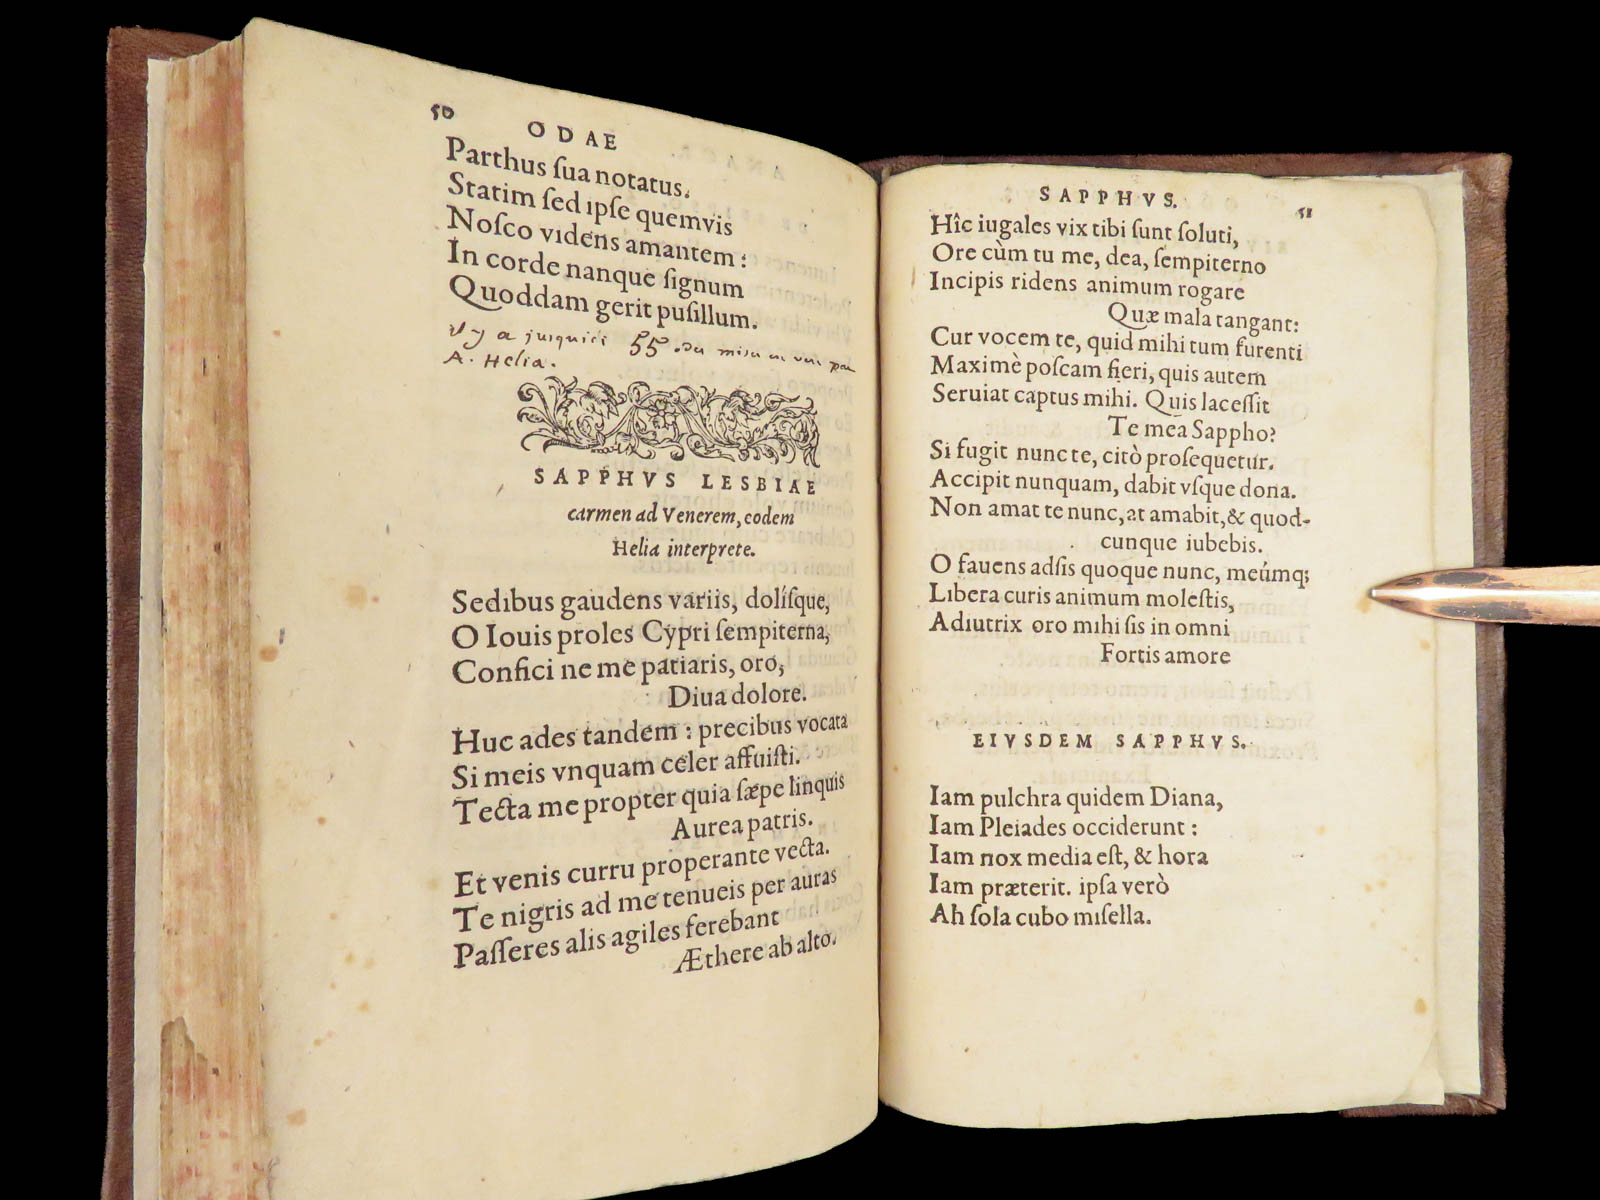 50
ODAE
Parthus ſua notatus.
Statim ſed ipſe quemvis
Noſco videns amantem :
In corde nanque ſignum
Quoddam gerit puſillum.
il y a juſquici 55 odes miſes en vers par
A. Helia.
SAPPHVS LESBIAE
carmen ad Venerem, eodem
Helia interprete.
Sedibus gaudens variis, dolíſque,
O Iouis proles Cypri ſempiterna,
Confici ne me patiaris, oro,
Diua dolore.
Huc ades tandem : precibus vocata
Si meis vnquam celer affuiſti.
Tecta me propter quia ſæpe linquis
Aurea patris.
Et venis curru properante vecta.
Te nigris ad me tenueis per auras
Paſſeres alis agiles ferebant
Æthere ab alto.
SAPPHVS.
51
Hîc iugales vix tibi ſunt ſoluti,
Ore cùm tu me, dea, ſempiterno
Incipis ridens animum rogare
Quæ mala tangant:
Cur vocem te, quid mihi tum furenti
Maximè poſcam fieri, quis autem
Seruiat captus mihi. Quis laceſſit
Te mea Sappho?
Si fugit nunc te, citò proſequetur.
Accipit nunquam, dabit vſque dona.
Non amat te nunc, at amabit, & quod-
cunque iubebis.
O fauens adſis quoque nunc, meúmq;
Libera curis animum moleſtis,
Adiutrix oro mihi ſis in omni
Fortis amore
EIVSDEM SAPPHVS.
Iam pulchra quidem Diana,
Iam Pleiades occiderunt :
Iam nox media eſt, & hora
Iam præterit. ipſa verò
Ah ſola cubo miſella.